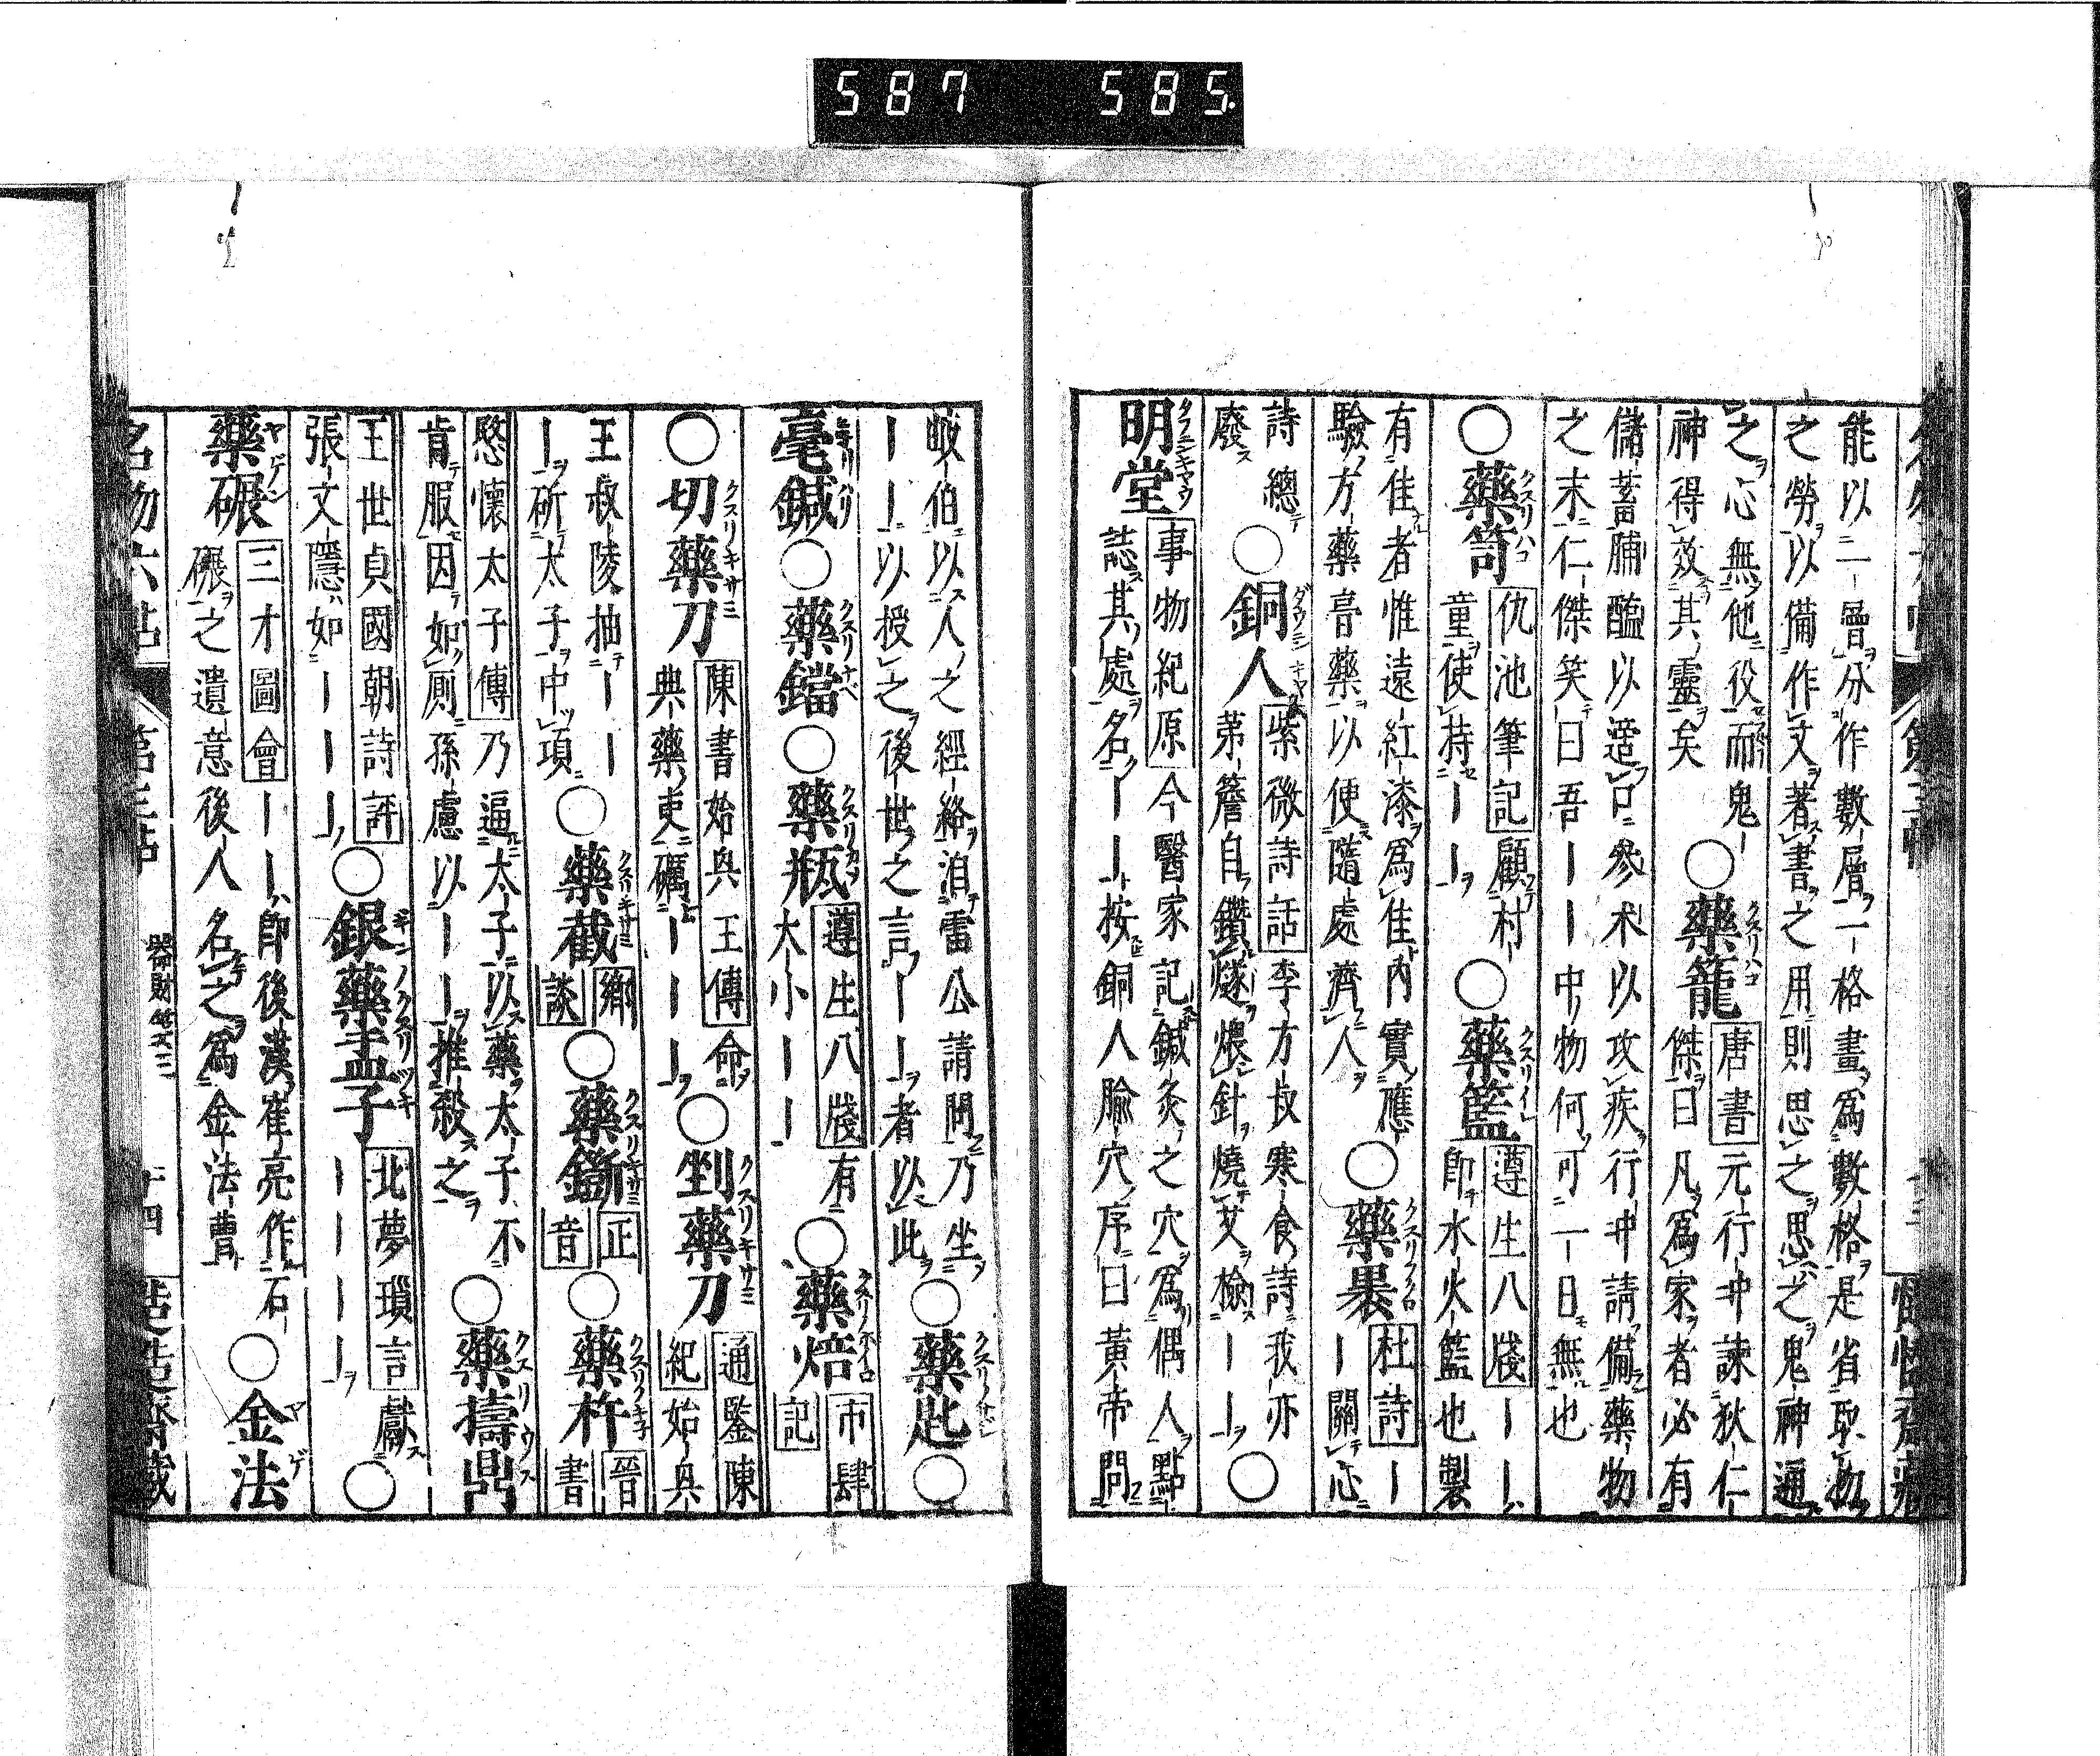 587 585.
能以二層分作數層一格畫爲數格是省取物
之勞以備作文著書之用則思之思之鬼神通
之心無他役而鬼
神得效其靈矣
○藥籠
唐書元行冲諫狄仁
傑曰凡爲家者必有
儲蓄脯醢以適口參朮以攻疾行冲請備藥物
之末仁傑笑曰吾ーー中物何可一日無也
○藥笥
仇池筆記顧村
童使持ーー
○藥籃
遵生八牋ーー
卽水火籃也製
有佳者惟遠紅漆爲佳內實應
驗方藥膏藥以便隨處濟人
○藥褁
杜詩ー
ー關心
詩總
廢
○銅人
紫微詩話李方叔寒食詩我亦
苐簷自鑽燧煨針燒艾檢ーー○
明堂
事物紀原今醫家記鍼灸之穴爲偶人點
誌其處名ーー按銅人腧穴序曰黃帝問
岐伯以人之經絡洎雷公請問乃坐
ーー以授之後世之言ーー者以此
○藥匙○
毫鍼○藥鐺○藥瓶
遵生八牋有
大小ーー
○藥焙
市肆
記
○切藥刀
陳書始興王傳命
典藥吏礪ーーー
○剉藥刀
通鑒陳
紀始興
王叔陵抽ーー
ー斫太子中項
○藥截
鄉
談
○藥鐁
正
音
○藥杵
晉
書
愍懷太子傳乃逼太子以藥太子不
肯服因如厠孫慮以ーー推殺之
○藥擣臼
王世貞國朝詩評
張文隱如ーーー
○銀藥盂子
北夢瑣言獻
ーーーー○
藥碾
三才圖會ーー卽後漢崔亮作石
碾之遺意後人名之爲金法曹
○金法
名物六帖 第三帖 器財箋三 十四